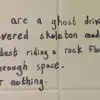 are a ghost driv
overed skeleton made
dust riding a rock flo
hrough space.
r nothing.